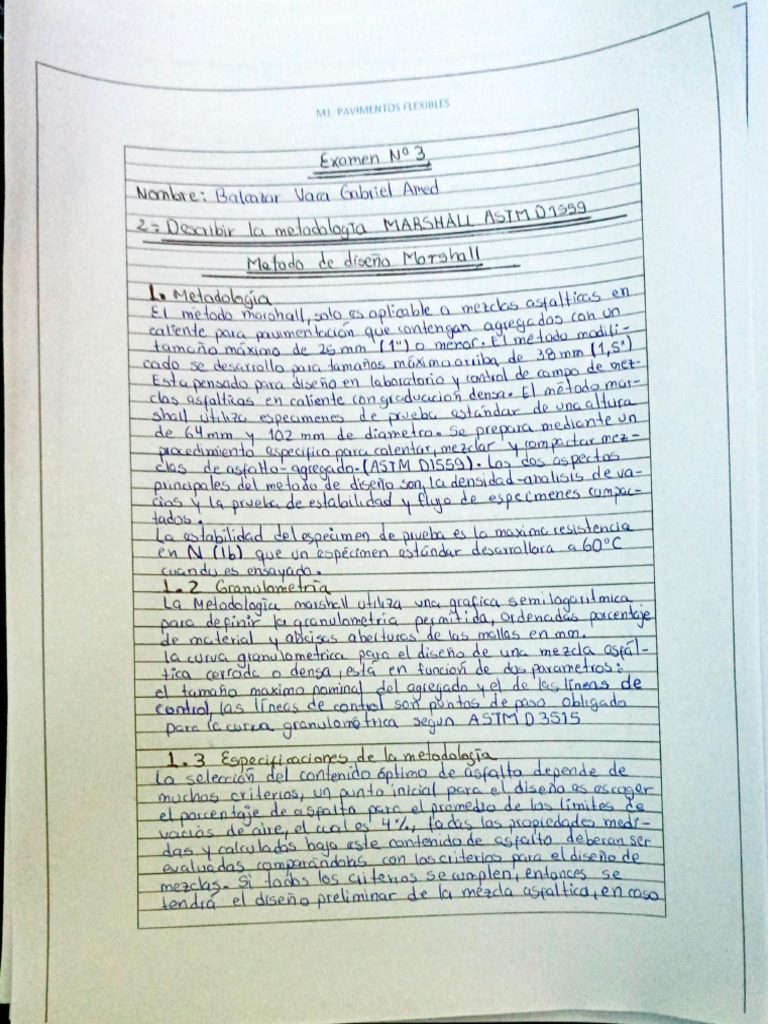 M1: PAVIMENTOS FLEXIBLES
Examen Nº 3
Nombre: Balcazar Vaca Gabriel Amed
2.- Describir la metodología MARSHALL ASTM D1559
Metodo de diseño Marshall
1. Metodología
El método marshall, solo es aplicable a mezclas asfalticas en
caliente para pavimentación que contengan agregados con un
tamaño máximo de 25 mm (1") o menor. El método modifi-
cado se desarrollo para tamaños máximo arriba de 38 mm (1,5")
Esta pensado para diseño en laboratorio y control de campo de mez-
clas asfalticas en caliente con graduación densa. El método mar-
shall utiliza especimenes de prueba estándar de una altura
de 64 mm y 102 mm de diametro. Se prepara mediante un
procedimiento especifico para calentar, mezclar y compactar mez-
clas de asfalto-agregado. (ASTM D1559). Los dos aspectos
principales del metodo de diseño son, la densidad-analisis de va-
cios y la prueba de estabilidad y flujo de especimenes compac-
tados.
La estabilidad del espécimen de prueba es la maxima resistencia
en N (lb) que un espécimen estándar desarrollara a 60°C
cuando es ensayado.
1.2 Granulometría
La Metodología marshall utiliza una grafica semilogaritmica
para definir la granulometría permitida, ordenadas porcentaje
de material y abcisas aberturas de las mallas en mm.
la curva granulometrica para el diseño de una mezcla asfál-
tica cerrada o densa, está en función de dos parametros:
el tamaño maximo nominal del agregado y el de las líneas de
control, las líneas de control son puntos de paso obligado
para la curva granulométrica segun ASTM D3515
1.3 Especificaciones de la metodología
La selección del contenido óptimo de asfalto depende de
muchos criterios, un punto inicial para el diseño es escoger
el porcentaje de asfalto para el promedio de los límites de
vacíos de aire, el cual es 4%, todas las propiedades medi-
das y calculadas bajo este contenido de asfalto deberan ser
evaluadas comparándolas con los criterios para el diseño de
mezclas. Si todos los criterios se cumplen, entonces se
tendrá el diseño preliminar de la mezcla asfaltica, en caso